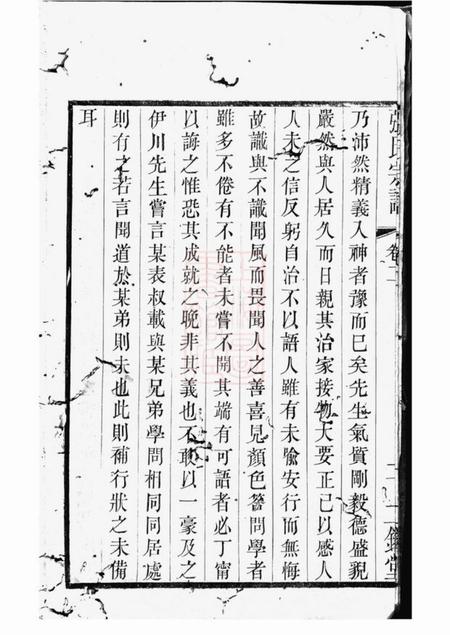 乃沛然精義入神者豫而已矣先生氣質剛毅德盛貌
嚴然與人居久而日親其治家接物大要正已以感人
人未之信反躬自治不以語人雖有未喻安行而無悔
故識與不識聞風而畏聞人之善喜見顏色答問學者
雖多不倦有不能者未嘗不開其端有可語者必丁甯
以誨之惟恐其成就之晚非其義也不敢以一豪及之
伊川先生嘗言某表叔載與某兄弟學問相同同居處
則有之若言聞道於某弟則未也此則補行狀之未備
耳
卷二